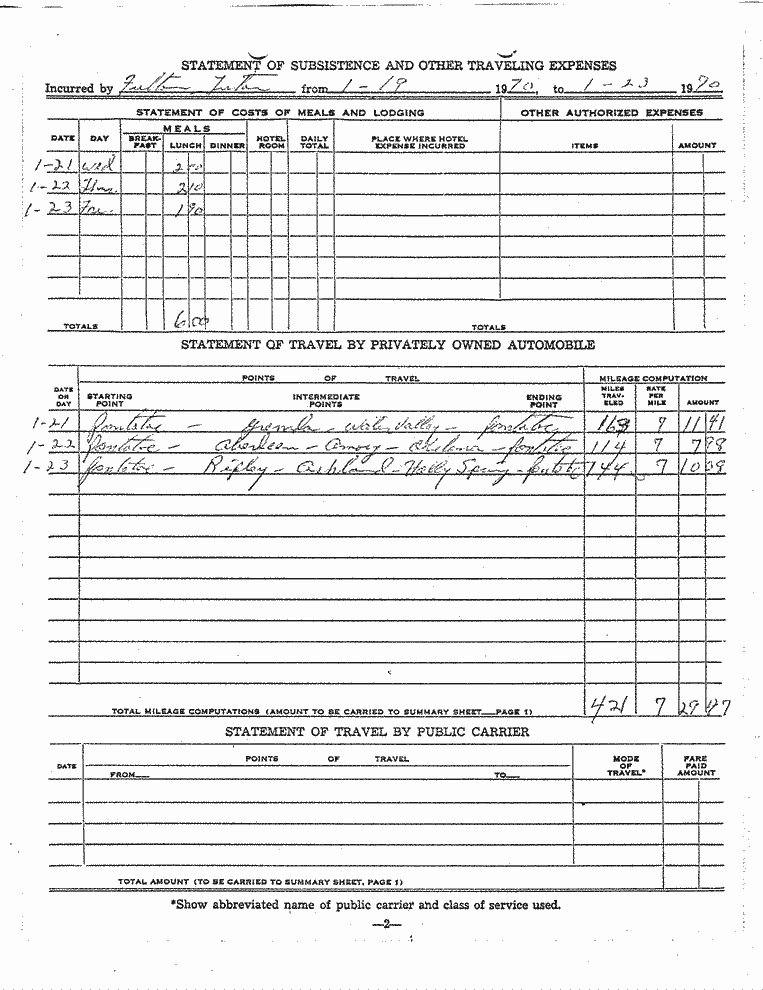 STATEMENT OF SUBSISTENCE AND OTHER TRAVELING EXPENSES
Incurred by Fulton from 1-19 1970, to 1-23 1970
STATEMENT OF COSTS OF MEALS AND LODGING OTHER AUTHORIZED EXPENSES
DATE DAY MEALS BREAK-FAST LUNCH DINNER HOTEL ROOM DAILY TOTAL PLACE WHERE HOTEL EXPENSE INCURRED ITEMS AMOUNT
1-21 Wed 2 00
1-22 Thurs. 2 10
1-23 Fri. 1 90
TOTALS 6 00 TOTALS
STATEMENT OF TRAVEL BY PRIVATELY OWNED AUTOMOBILE
POINTS OF TRAVEL MILEAGE COMPUTATION
DATE OR DAY STARTING POINT INTERMEDIATE POINTS ENDING POINT MILES TRAV-ELED RATE PER MILE AMOUNT
1-21 Pontotoc - Grenada - Water Valley - Pontotoc 163 7 11 41
1-22 Pontotoc - Aberdeen - Amory - Okolona - Pontotoc 114 7 7 98
1-23 Pontotoc - Ripley - Ashland - Holly Spring - Pontotoc 144 7 10 08
TOTAL MILEAGE COMPUTATIONS (AMOUNT TO BE CARRIED TO SUMMARY SHEET—PAGE 1) 421 7 29 47
STATEMENT OF TRAVEL BY PUBLIC CARRIER
DATE POINTS OF TRAVEL MODE OF TRAVEL* FARE PAID AMOUNT
FROM— TO—
TOTAL AMOUNT (TO BE CARRIED TO SUMMARY SHEET, PAGE 1)
*Show abbreviated name of public carrier and class of service used.
—2—